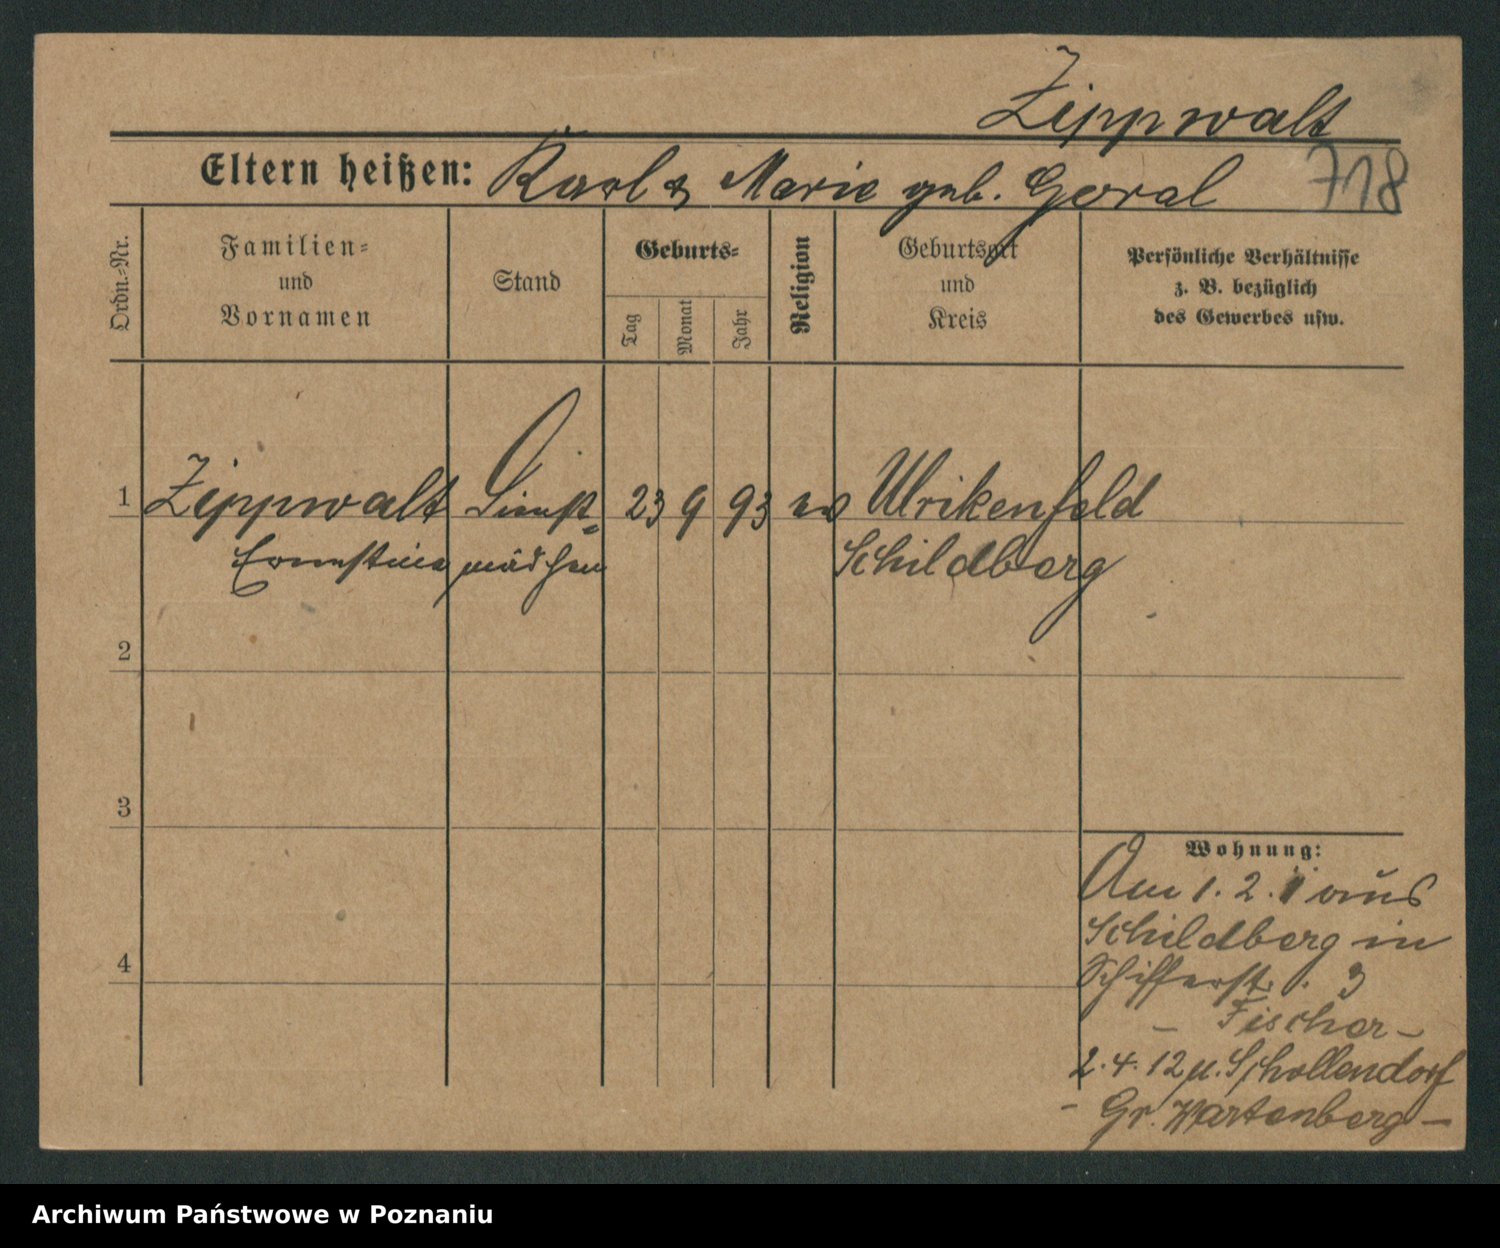 Zippwalt
Eltern heißen: Karl & Marie geb. Goral 718
Ordn.=Nr.
Familien=
und
Vornamen
Stand
Geburts=
Tag
Monat
Jahr
Religion
Geburtsort
und
Kreis
Persönliche Verhältnisse
z. B. bezüglich
des Gewerbes usw.
1 Zippwalt Dienst= 23 9 93 ev Ulrikenfeld
Ernestine mädchen Schildberg
2
3
4
Wohnung:
Am 1. 2. aus
Schildberg in
Schifferst. 3
- Fischer -
2. 4. 12 n. Schollendorf
- Gr. Wartenberg -
Archiwum Państwowe w Poznaniu